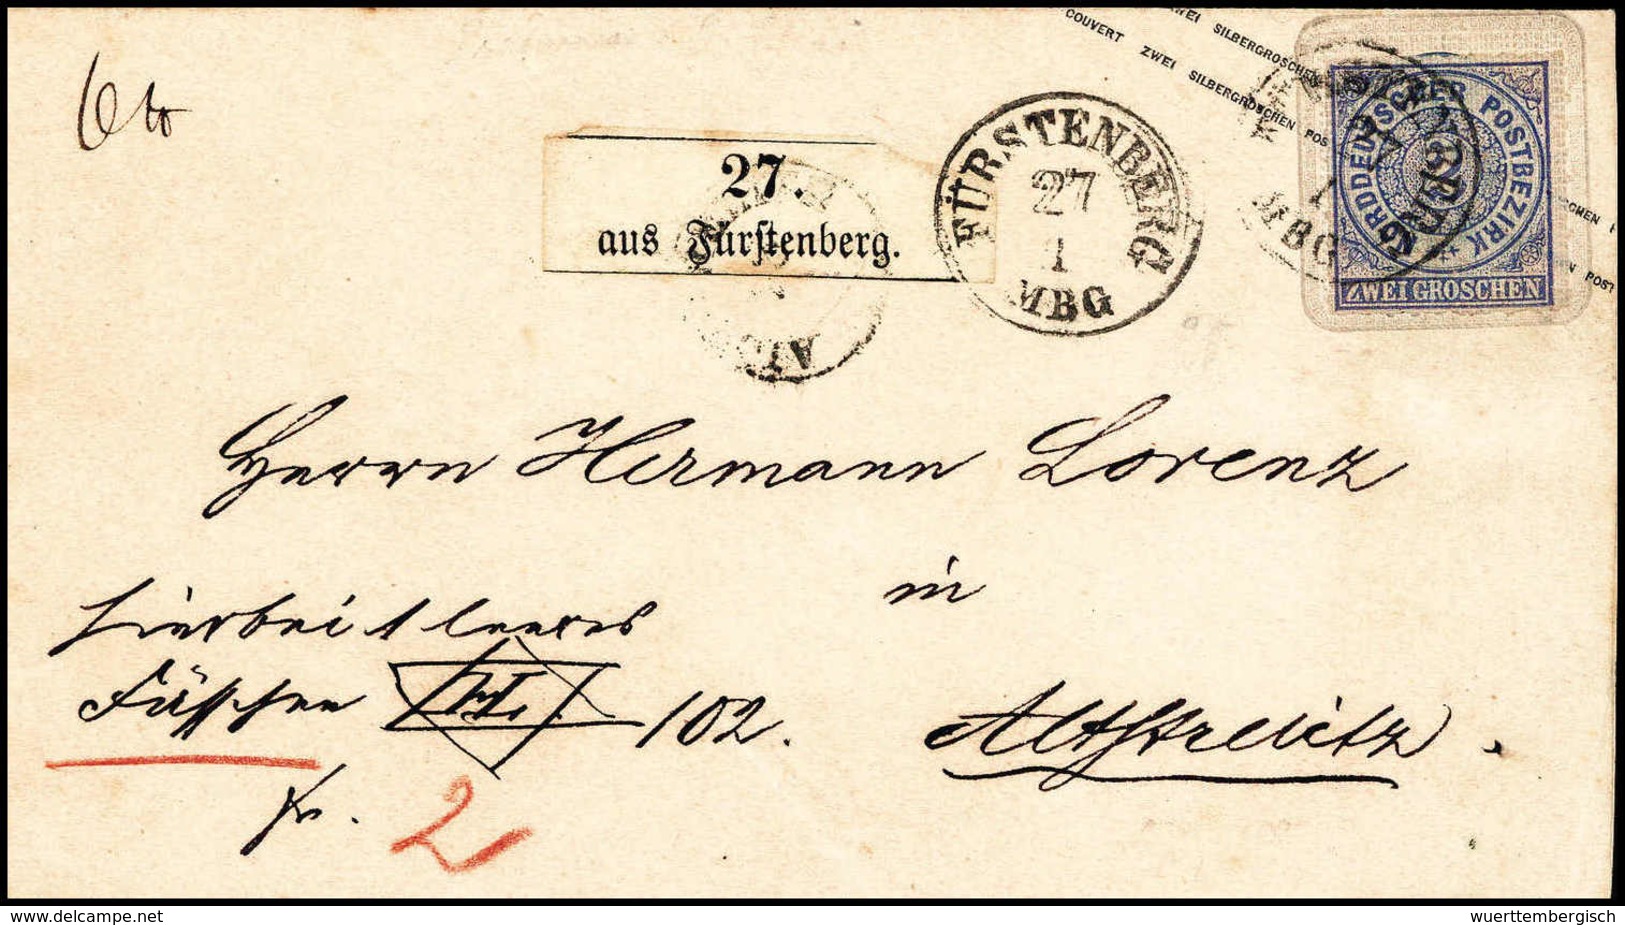 COUVERT ZWEI SILBERGROSCHEN POS
ZWEI SILBERGROSCHEN
NORDDEUTSCHER POSTBEZIRK
ZWEI GROSCHEN
FÜRSTENBERG
27
1
MBG
27.
aus Fürstenberg.
Herrn Hermann Lorenz
in
Altstrelitz.
hierbei 1 leeres
Fässchen H.L. 102.
fr.
2
wuerttembergisch